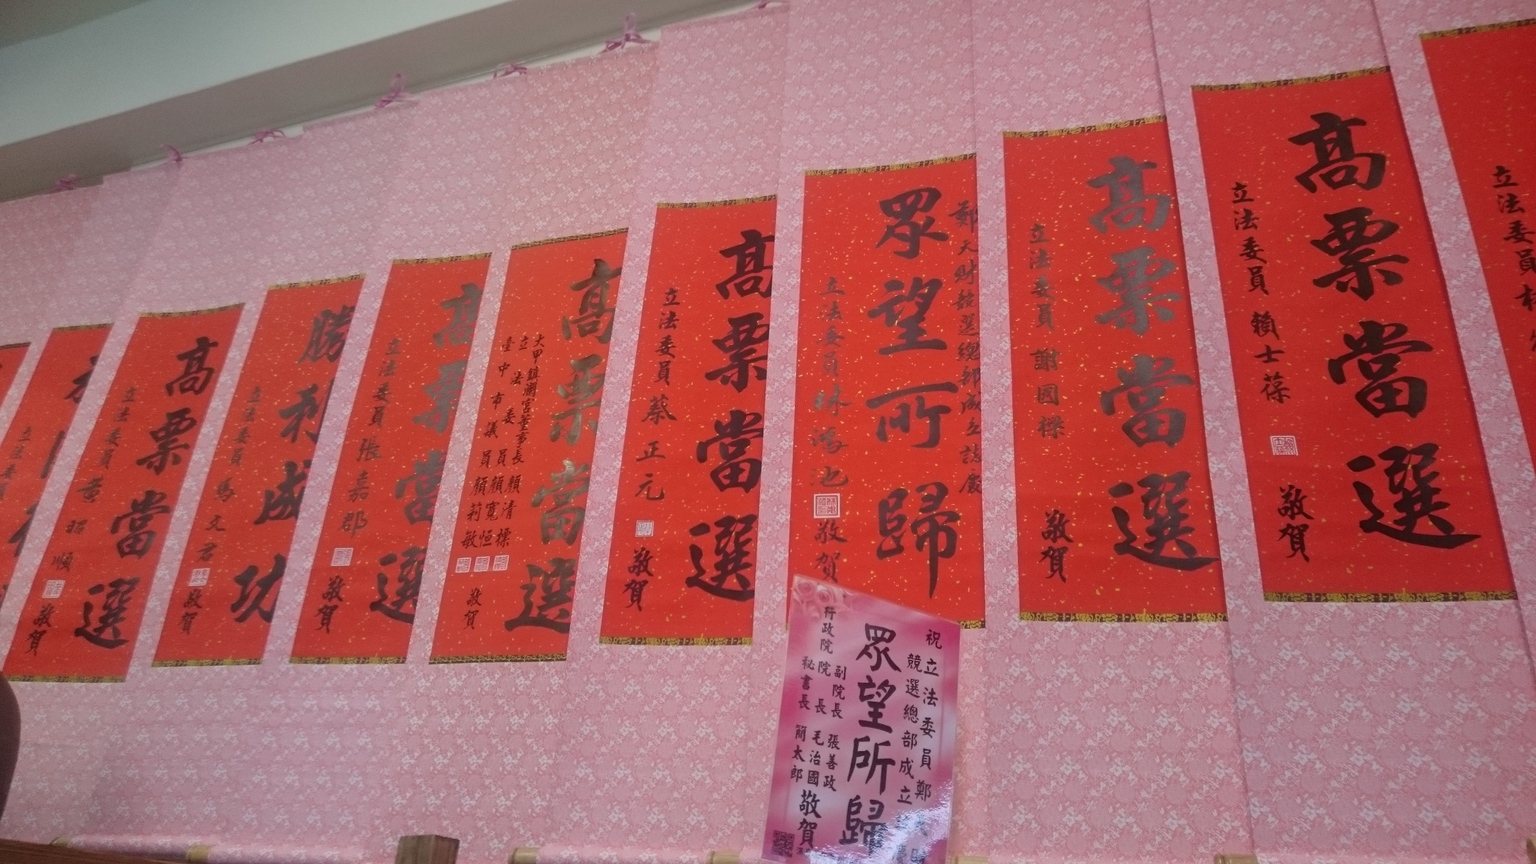 立法委員
高票當選
立法委員 賴士葆
敬賀
高票當選
立法委員 謝國樑
敬賀
鄭天財競選總部成立誌慶
眾望所歸
立法委員 林鴻池
敬賀
高票當選
立法委員 蔡正元
敬賀
高票當選
大甲鎮瀾宮董事長 顏清標
立法委員 顏寬恒
臺中市議員 顏莉敏
敬賀
高票當選
立法委員 張嘉郡
敬賀
勝利成功
立法委員 馬文君
敬賀
高票當選
立法委員 黃昭順
敬賀
立法委員
祝立法委員鄭
競選總部成立
眾望所歸
副院長 張善政
行政院院長 毛治國
秘書長 簡太郎
敬賀